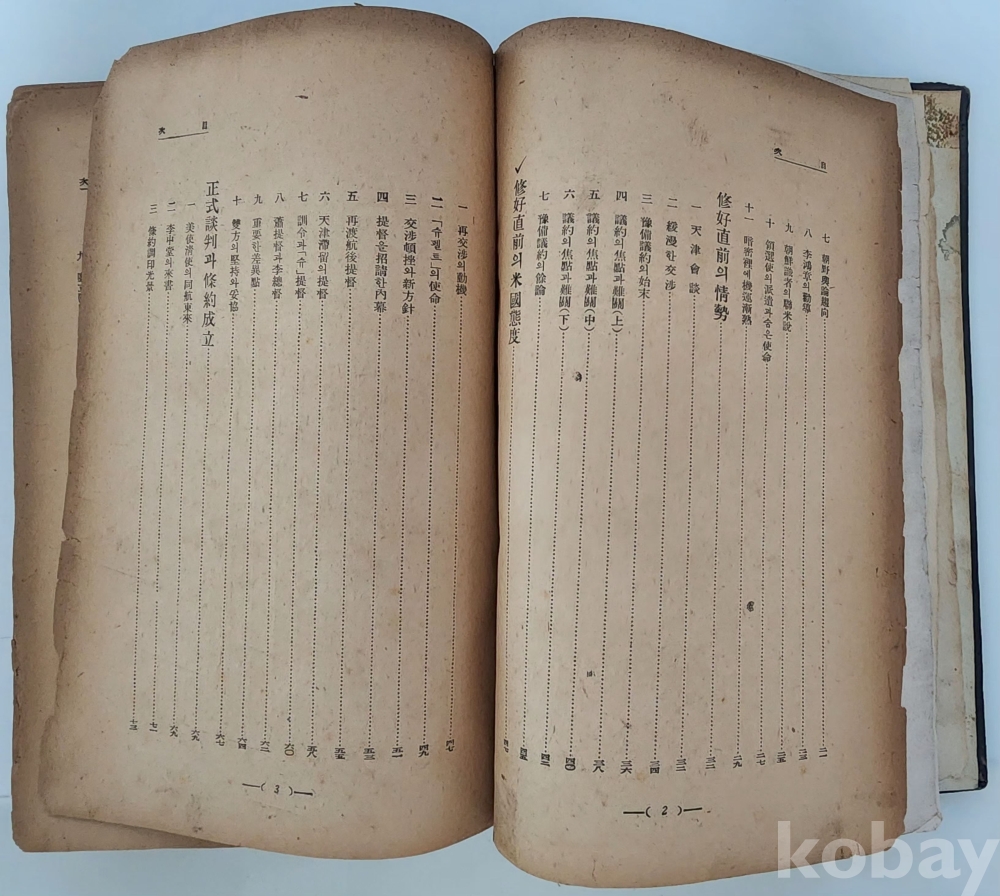 目 次
七 朝野輿論趨向 二一
八 李鴻章의勸導 二三
九 朝鮮識者의聯米說 二五
十 領選使의派遣과숨은使命 二七
十一 暗密裡에機運漸熟 二九
修好直前의情勢 三二
一 天津會談 三二
二 緩漫한交渉 三四
三 豫備議約의始末 三六
四 議約의焦點과難關(上) 三八
五 議約의焦點과難關(中) 四〇
六 議約의焦點과難關(下) 四三
七 豫備議約의餘論 四五
修好直前의米國態度 四七
(2)
目 次
一 再交涉의動機 四七
二 「슈펠트」의使命 四九
三 交涉頓挫와新方針 五一
四 提督은招請한內幕 五三
五 再渡航後提督 五五
六 天津滯留의提督 五八
七 訓令과「슈」提督 六〇
八 蕭提督과李總督 六二
九 重要한差異點 六四
十 雙方의堅持와妥協 六七
正式談判과條約成立 六九
一 美使淸使의同航東來 六九
二 李中堂의來書 七一
三 條約調印光景 七三
(3)
kobay